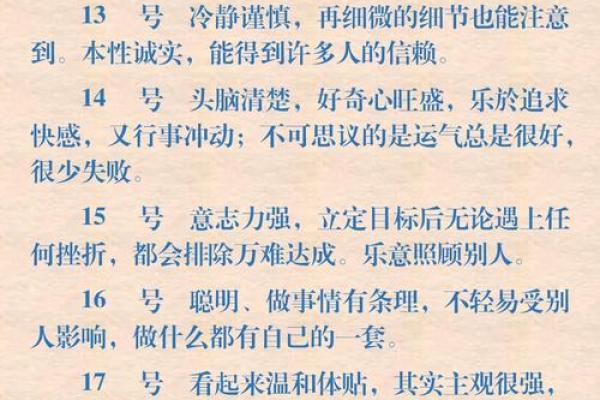 13 号 冷静谨慎，再细微的细节也能注意
到。本性诚实，能得到许多人的信赖。
14 号 头脑清楚，好奇心旺盛，乐於追求
快感，又行事冲动；不可思议的是运气总是很好，
很少失败。
15 号 意志力强，立定目标后无论遇上任
何挫折，都会排除万难达成。乐意照顾别人。
16 号 聪明、做事情有条理，不轻易受别
人影响，做什么都有自己的一套。
17 号 看起来温和体贴，其实主观很强，